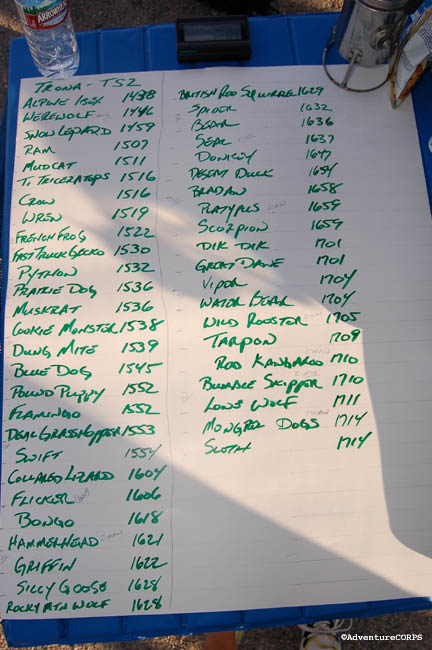 ARROWHEAD
TRONA - TS2
ALPINE IBEX 1438
WEREWOLF 1446
SNOW LEOPARD 1459
RAM 1507
MUDCAT 1511
TI TRICERATOPS 1516
CROW 1516
WREN 1519
FRENCH FROG 1522
FAST TRUCK GECKO 1530
PYTHON 1532
PRAIRIE DOG 1536
MUSKRAT 1536
COOKIE MONSTER 1538
DUNG MITE 1539
BLUE DOG 1545
POUND PUPPY 1552
FLAMINGO 1552
DEAL GRASSHOPPER 1553
SWIFT 1554
COLLARED LIZARD 1604
FLICKER 1606
BONGO 1618
HAMMERHEAD 1621
GRIFFIN 1622
SILLY GOOSE 1628
ROCKY MTN WOLF 1628
BRITISH RED SQUIRREL 1629
SPIDER 1632
BEAR 1636
SEAL 1637
DONKEY 1647
DESERT DUCK 1654
BRADAN 1658
PLATYPUS 1659
SCORPION 1659
DIK DIK 1701
GREAT DANE 1701
VIPER 1704
WATER BEAR 1704
WILD ROOSTER 1705
TARPON 1709
ROO KANGAROO 1710
BUMBLE SKIPPER 1710
LONE WOLF 1711
MONGREL DOGS 1714
SLOTH 1714
©AdventureCORPS